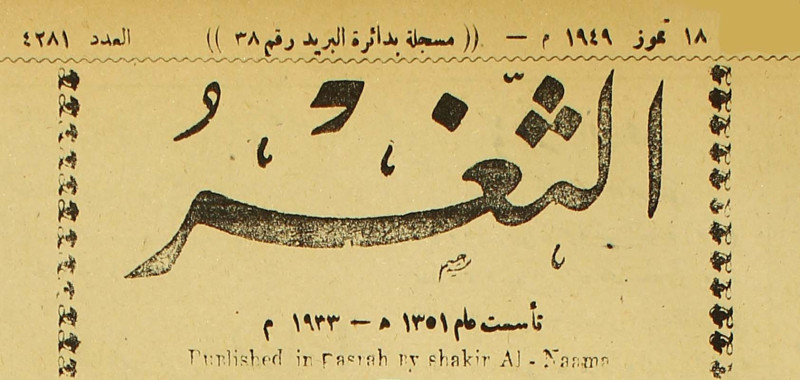 ١٨ تموز ١٩٤٩ م — (( مسجلة بدائرة البريد رقم ٣٨ )) العدد ٤٢٨١
الثَّغْرُ
تأسست عام ١٣٥١ ه — ١٩٣٣ م
Published in Basrah by shakir Al - Naama